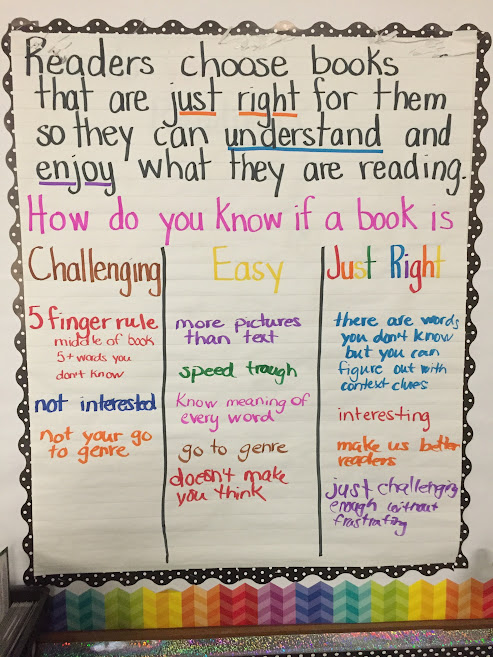 Readers choose books
that are just right for them
so they can understand and
enjoy what they are reading.
How do you know if a book is
Challenging
5 finger rule
middle of book
5+ words you
don't know
not interested
not your go
to genre
Easy
more pictures
than text
speed trough
Know meaning of
every word
go to genre
doesn't make
you think
Just Right
there are words
you don't know
but you can
figure out with
context clues
interesting
make us better
readers
just challenging
enough without
frustrating